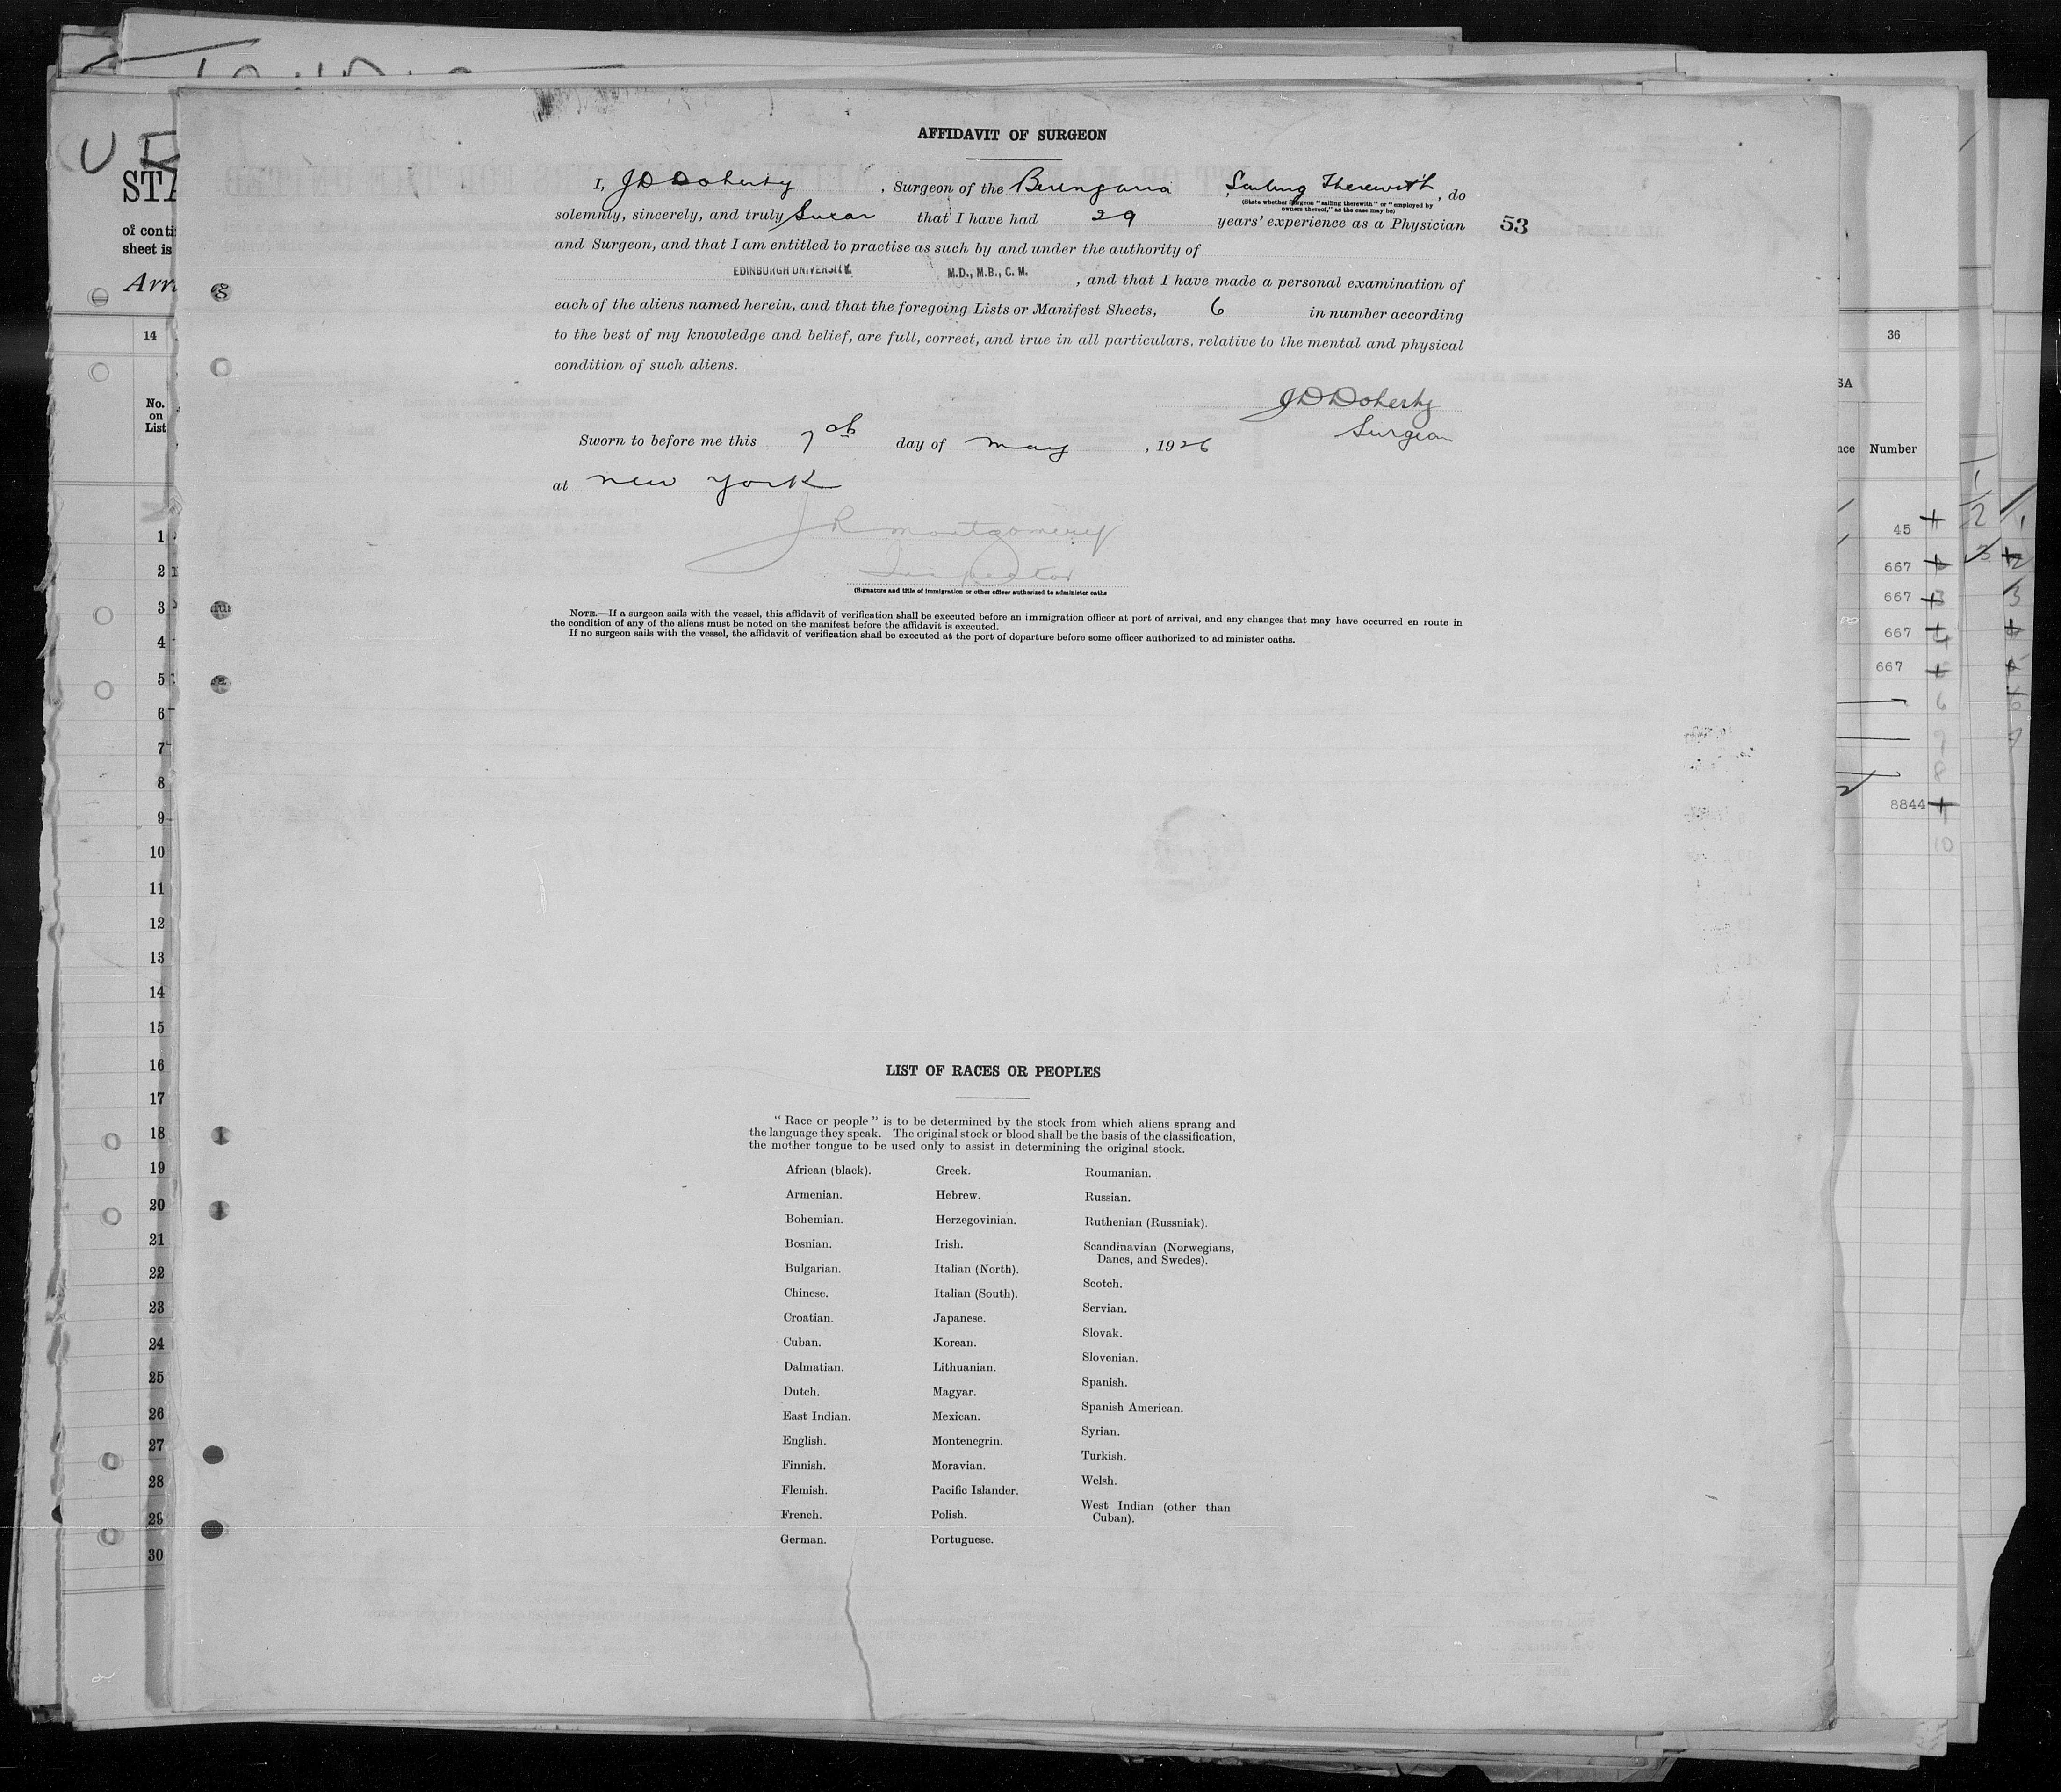 AFFIDAVIT OF SURGEON
I, J D Doherty, Surgeon of the Berengaria, Sailing Therewith, do
(State whether Surgeon "sailing therewith" or "employed by
owners thereof," as the case may be)
solemnly, sincerely, and truly Swear that I have had 29 years' experience as a Physician
53
and Surgeon, and that I am entitled to practise as such by and under the authority of
EDINBURGH UNIVERSITY. M.D., M.B., C. M. , and that I have made a personal examination of
each of the aliens named herein, and that the foregoing Lists or Manifest Sheets, 6 in number according
to the best of my knowledge and belief, are full, correct, and true in all particulars, relative to the mental and physical
condition of such aliens.
J D Doherty
Surgeon
Sworn to before me this 7th day of May, 1926
at New York
J R Montgomery
Inspector
(Signature and title of immigration or other officer authorized to administer oaths
NOTE.—If a surgeon sails with the vessel, this affidavit of verification shall be executed before an immigration officer at port of arrival, and any changes that may have occurred en route in
the condition of any of the aliens must be noted on the manifest before the affidavit is executed.
If no surgeon sails with the vessel, the affidavit of verification shall be executed at the port of departure before some officer authorized to ad minister oaths.
LIST OF RACES OR PEOPLES
" Race or people " is to be determined by the stock from which aliens sprang and
the language they speak. The original stock or blood shall be the basis of the classification,
the mother tongue to be used only to assist in determining the original stock.
African (black).
Armenian.
Bohemian.
Bosnian.
Bulgarian.
Chinese.
Croatian.
Cuban.
Dalmatian.
Dutch.
East Indian.
English.
Finnish.
Flemish.
French.
German.
Greek.
Hebrew.
Herzegovinian.
Irish.
Italian (North).
Italian (South).
Japanese.
Korean.
Lithuanian.
Magyar.
Mexican.
Montenegrin.
Moravian.
Pacific Islander.
Polish.
Portuguese.
Roumanian.
Russian.
Ruthenian (Russniak).
Scandinavian (Norwegians,
Danes, and Swedes).
Scotch.
Servian.
Slovak.
Slovenian.
Spanish.
Spanish American.
Syrian.
Turkish.
Welsh.
West Indian (other than
Cuban).
STA
of conti
sheet is
Arr
14
No.
on
List
1
2
3
4
5
6
7
8
9
10
11
12
13
14
15
16
17
18
19
20
21
22
23
24
25
26
27
28
29
30
36
SA
nce
Number
45
667
667
667
667
8844
6
8
10